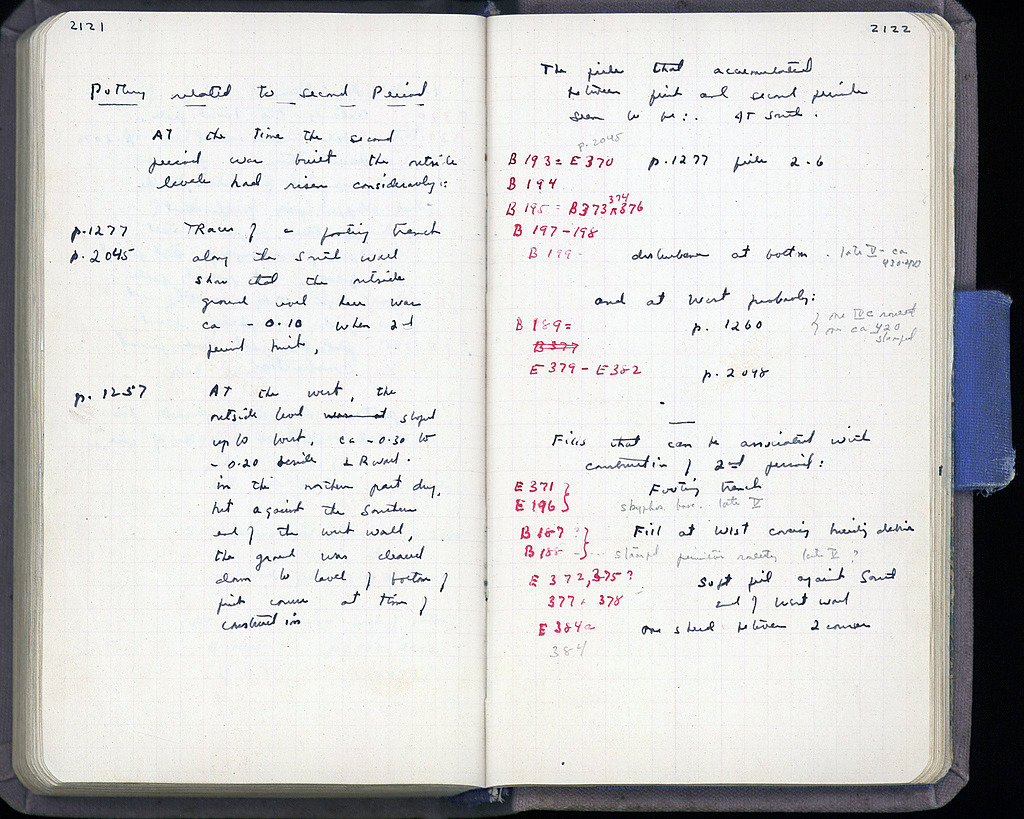 2121
Pottery related to second Period
At the time the second
period was built the outside
levels had risen considerably:
p.1277 Traces of a footing trench
p.2045 along the South wall
show that the outside
ground level here was
ca - 0.10 when 2nd
period built,
p. 1257 At the west, the
outside level sloped
up to west, ca -0.30 to
- 0.20 beside wall.
in the northern part dug,
but against the Southern
end of the west wall,
the ground was cleared
down to level of bottom of
first course at time of
construction
2122
The fills that accumulated
between first and second periods
seem to be: At South.
p.2045
B 193 = E 370 p.1277 fills 2-6
B 194
374
B 195 = B373 376
B 197-198
B 199 - disturbance at bottom. late V - ca
and at West probably:
B 189 = p. 1260 one IV c
one ca 420
stamped
B 377
E 379 - E 382 p. 2048
Fills that can be associated with
construction of 2nd period:
E 371 } Footing trench
E 196 } skyphos base. late V
B 187 ? } Fill at West covering debris
B 188 - } stamped late V ?
E 372, 375? Soft fill against South
377 + 378 end of West wall
E 384a one sherd between 2 courses
384